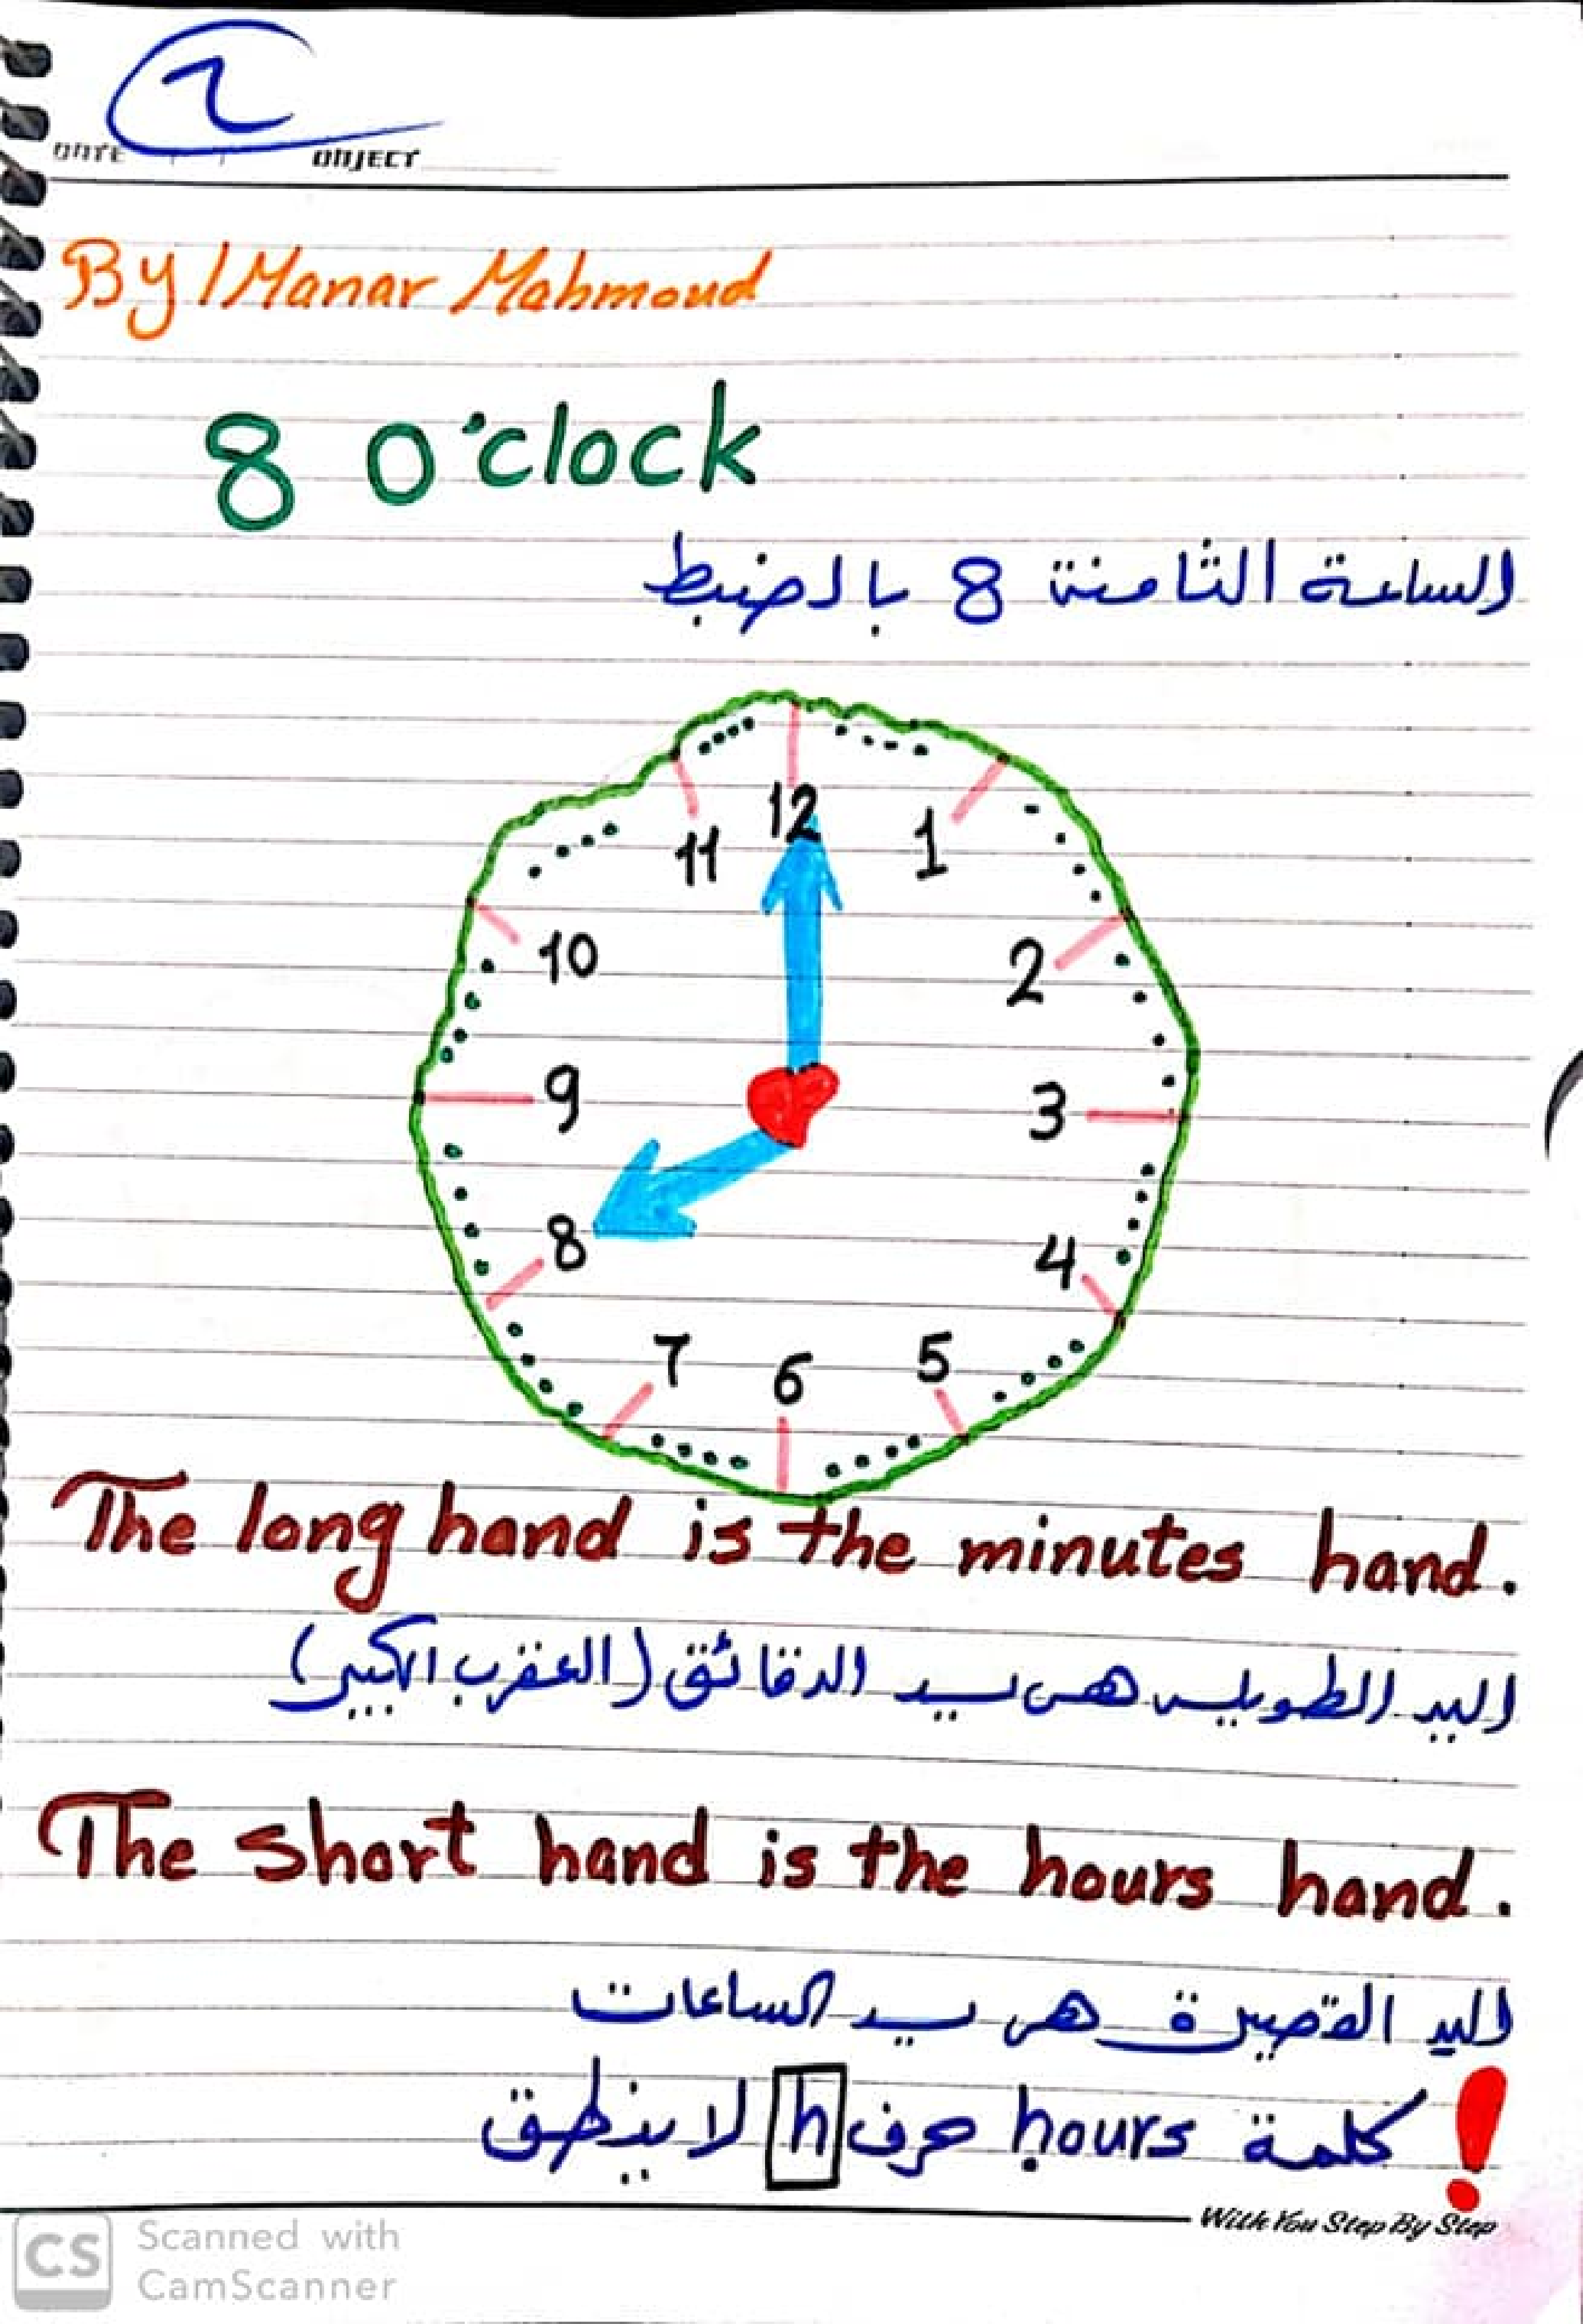 2
DATE OBJECT
By / Manar Mahmoud
8 O'clock
الساعة الثامنة 8 بالضبط
12
11 1
10 2
9 3
8 4
7 6 5
The long hand is the minutes hand.
اليد الطويله هى يد الدقائق (العقرب الكبير)
The short hand is the hours hand.
اليد القصيرة هى يد الساعات
! كلمة hours حرف h لا ينطق
With You Step By Step
CS Scanned with
CamScanner